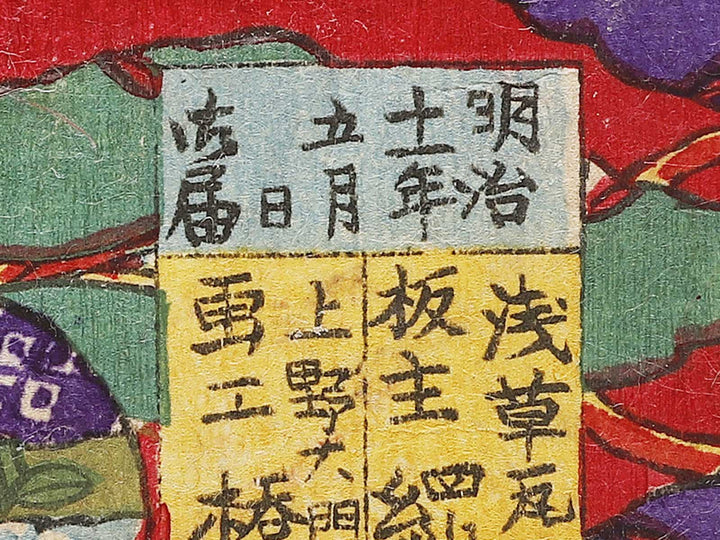 明治
十一年
五月
日
御届
浅草瓦
板主
上野大門
画工